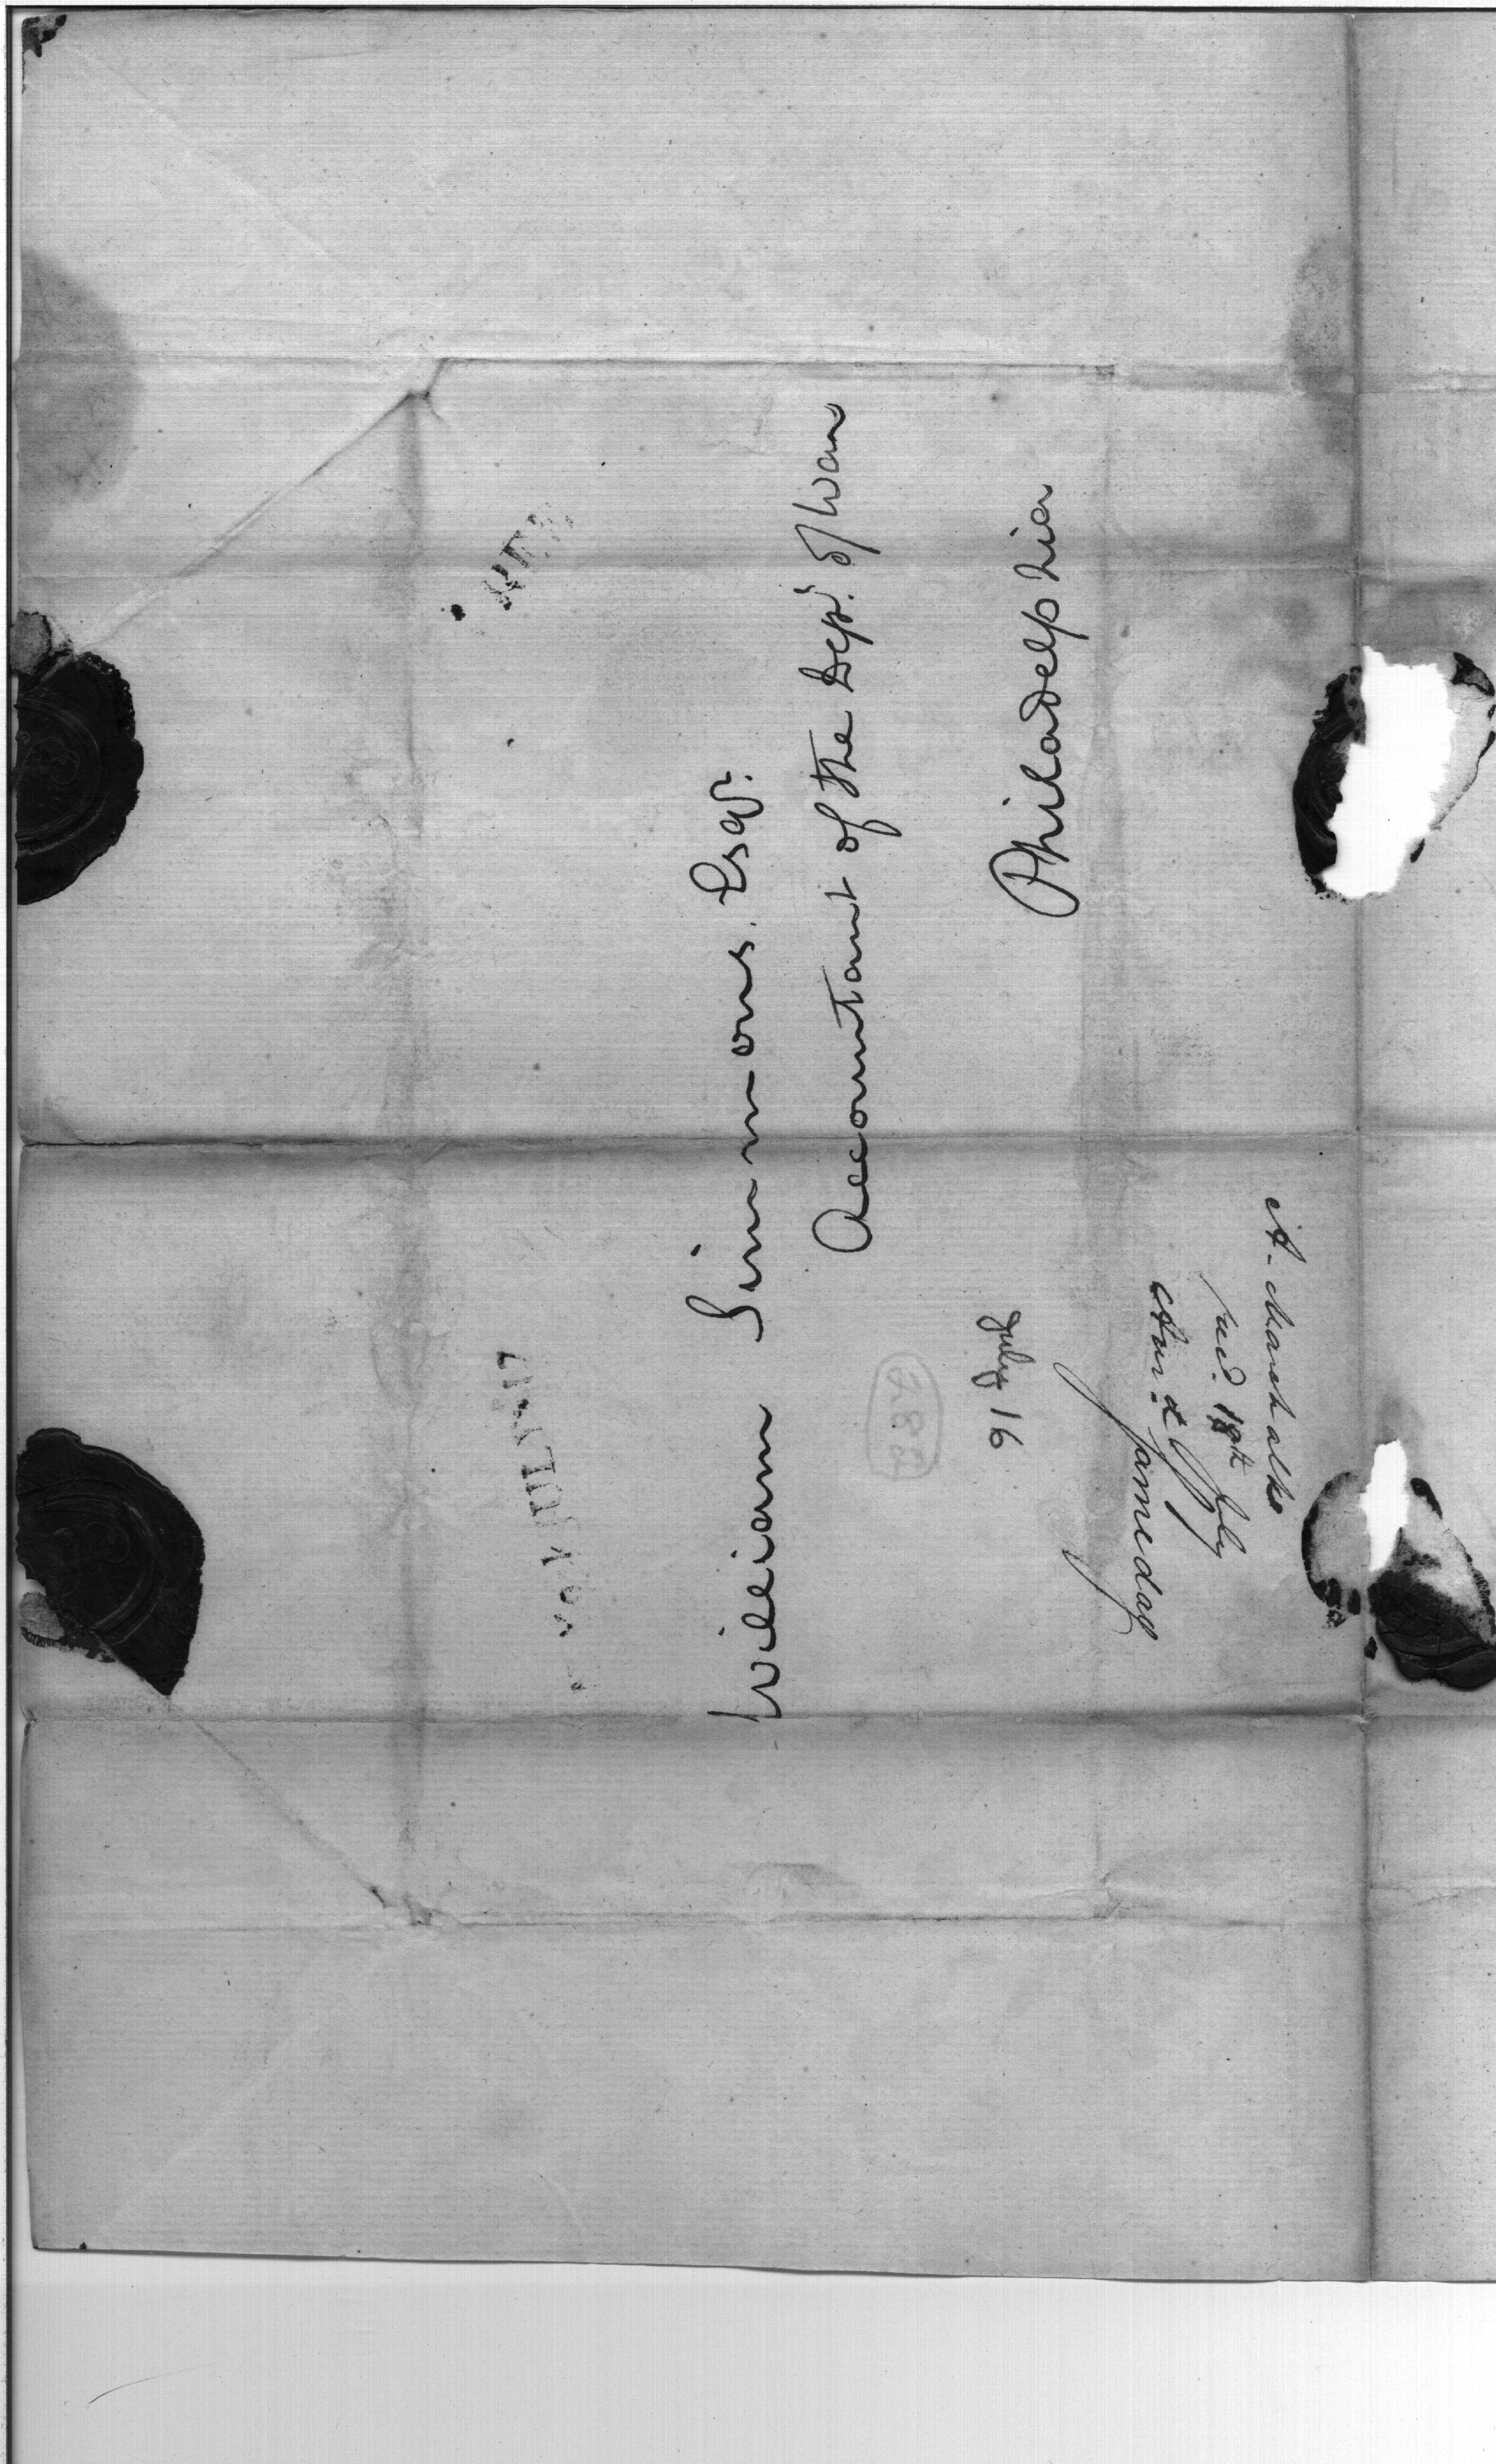 William Simmons. Esqr.
Accountant of the Dept. of War
Philadelphia
16 July
A. Marschalk
recd. 18th July
Ansd same day